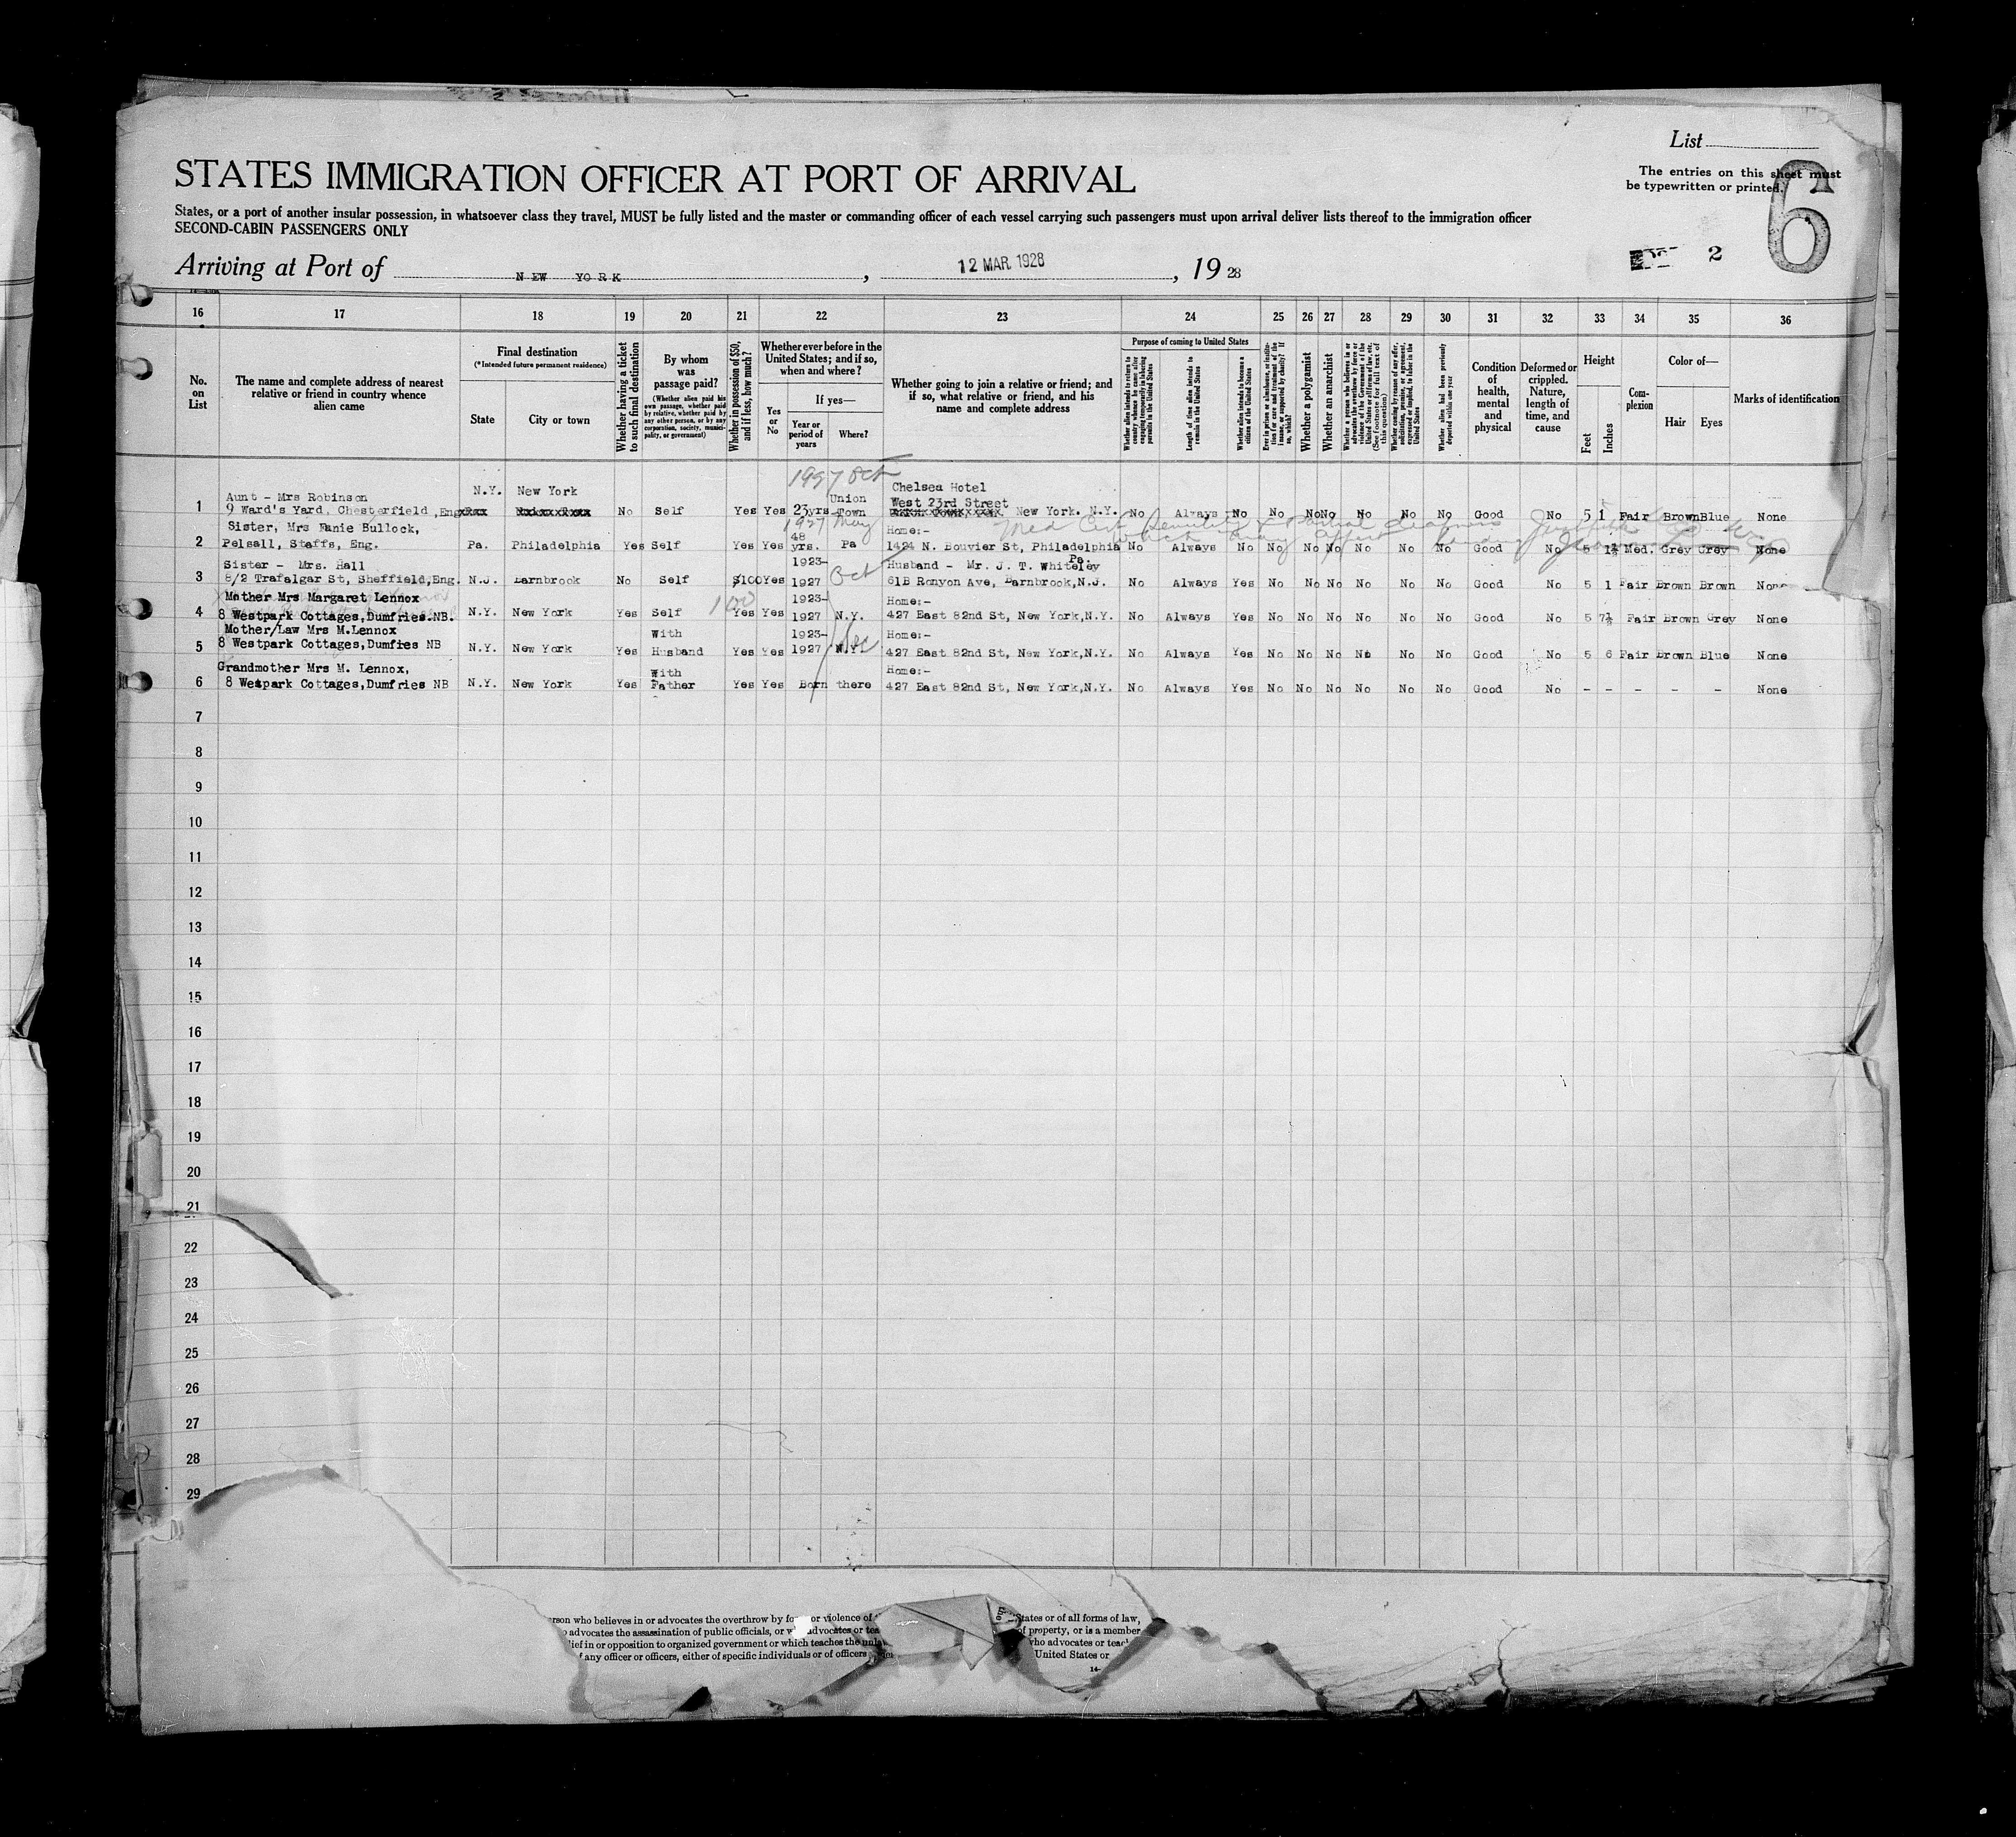 List
The entries on this sheet must
be typewritten or printed.
6
STATES IMMIGRATION OFFICER AT PORT OF ARRIVAL
States, or a port of another insular possession, in whatsoever class they travel, MUST be fully listed and the master or commanding officer of each vessel carrying such passengers must upon arrival deliver lists thereof to the immigration officer
SECOND-CABIN PASSENGERS ONLY
Arriving at Port of NEW YORK, 12 MAR. 1928, 19 28
2
16 17 18 19 20 21 22 23 24 25 26 27 28 29 30 31 32 33 34 35 36
No. on List
The name and complete address of nearest relative or friend in country whence alien came
Final destination
(*Intended future permanent residence)
State
City or town
Whether having a ticket to such final destination
By whom was passage paid?
(Whether alien paid his own passage, whether paid by relative, whether paid by any other person, or by any corporation, society, municipality, or government)
Whether in possession of $50, and if less, how much?
Whether ever before in the United States; and if so, when and where?
Yes or No
If yes—
Year or period of years
Where?
Whether going to join a relative or friend; and if so, what relative or friend, and his name and complete address
Purpose of coming to United States
Whether alien intends to return to country whence he came after engaging temporarily in laboring pursuits in the United States
Length of time alien intends to remain in the United States
Whether alien intends to become a citizen of the United States
Ever in prison or almshouse, or institution for care and treatment of the insane, or supported by charity? If so, which?
Whether a polygamist
Whether an anarchist
Whether a person who believes in or advocates the overthrow by force or violence of the Government of the United States or all forms of law, etc. (See footnote for full text of this question)
Whether coming by reason of any offer, solicitation, promise, or agreement, expressed or implied, to labor in the United States
Whether alien had been previously deported within one year
Condition of health, mental and physical
Deformed or crippled. Nature, length of time, and cause
Height
Feet
Inches
Complexion
Color of—
Hair
Eyes
Marks of identification
1927 Oct
Aunt - Mrs Robinson N.Y. New York Union Chelsea Hotel
West 23rd Street
1 9 Ward's Yard, Chesterfield, Eng No Self Yes Yes 23yrs Town New York. N.Y. No Always No No No No No No No Good No 5 1 Fair Brown Blue None
1927 May
Med Cert Senility
which may affect
Sister, Mrs Fanie Bullock, 48 Home:-
2 Pelsall, Staffs, Eng. Pa. Philadelphia Yes Self Yes Yes yrs. Pa 1424 N. Bouvier St, Philadelphia No Always No No No No No No No Good No 5 1½ Med. Grey Grey None
Pa.
Sister - Mrs. Hall 1923- Oct Husband - Mr. J. T. Whiteley
3 8/2 Trafalgar St, Sheffield, Eng. N.J. Barnbrook No Self $100 Yes 1927 61B Ronyon Ave, Barnbrook, N.J. No Always Yes No No No No No No Good No 5 1 Fair Brown Brown None
Mother Mrs Margaret Lennox 100 1923- Home:-
4 8 Westpark Cottages, Dumfries.NB. N.Y. New York Yes Self Yes Yes 1927 N.Y. 427 East 82nd St, New York, N.Y. No Always Yes No No No No No No Good No 5 7½ Fair Brown Grey None
Mother/Law Mrs M.Lennox With 1923- Home:-
5 8 Westpark Cottages, Dumfies NB N.Y. New York Yes Husband Yes Yes 1927 N.Y. 427 East 82nd St, New York, N.Y. No Always Yes No No No No No No Good No 5 6 Fair Brown Blue None
Grandmother Mrs M. Lennox, With Home:-
6 8 Westpark Cottages, Dumfries NB N.Y. New York Yes Father Yes Yes Born there 427 East 82nd St, New York, N.Y. No Always Yes No No No No No No Good No - - - - - None
7
8
9
10
11
12
13
14
15
16
17
18
19
20
21
22
23
24
25
26
27
28
29
erson who believes in or advocates the overthrow by fo or violence of States or of all forms of law,
advocates the assassination of public officials, or w advocates or tea of property, or is a member
lief in or opposition to organized government or which teaches the unla who advocates or teach
f any officer or officers, either of specific individuals or of officers United States or
14-